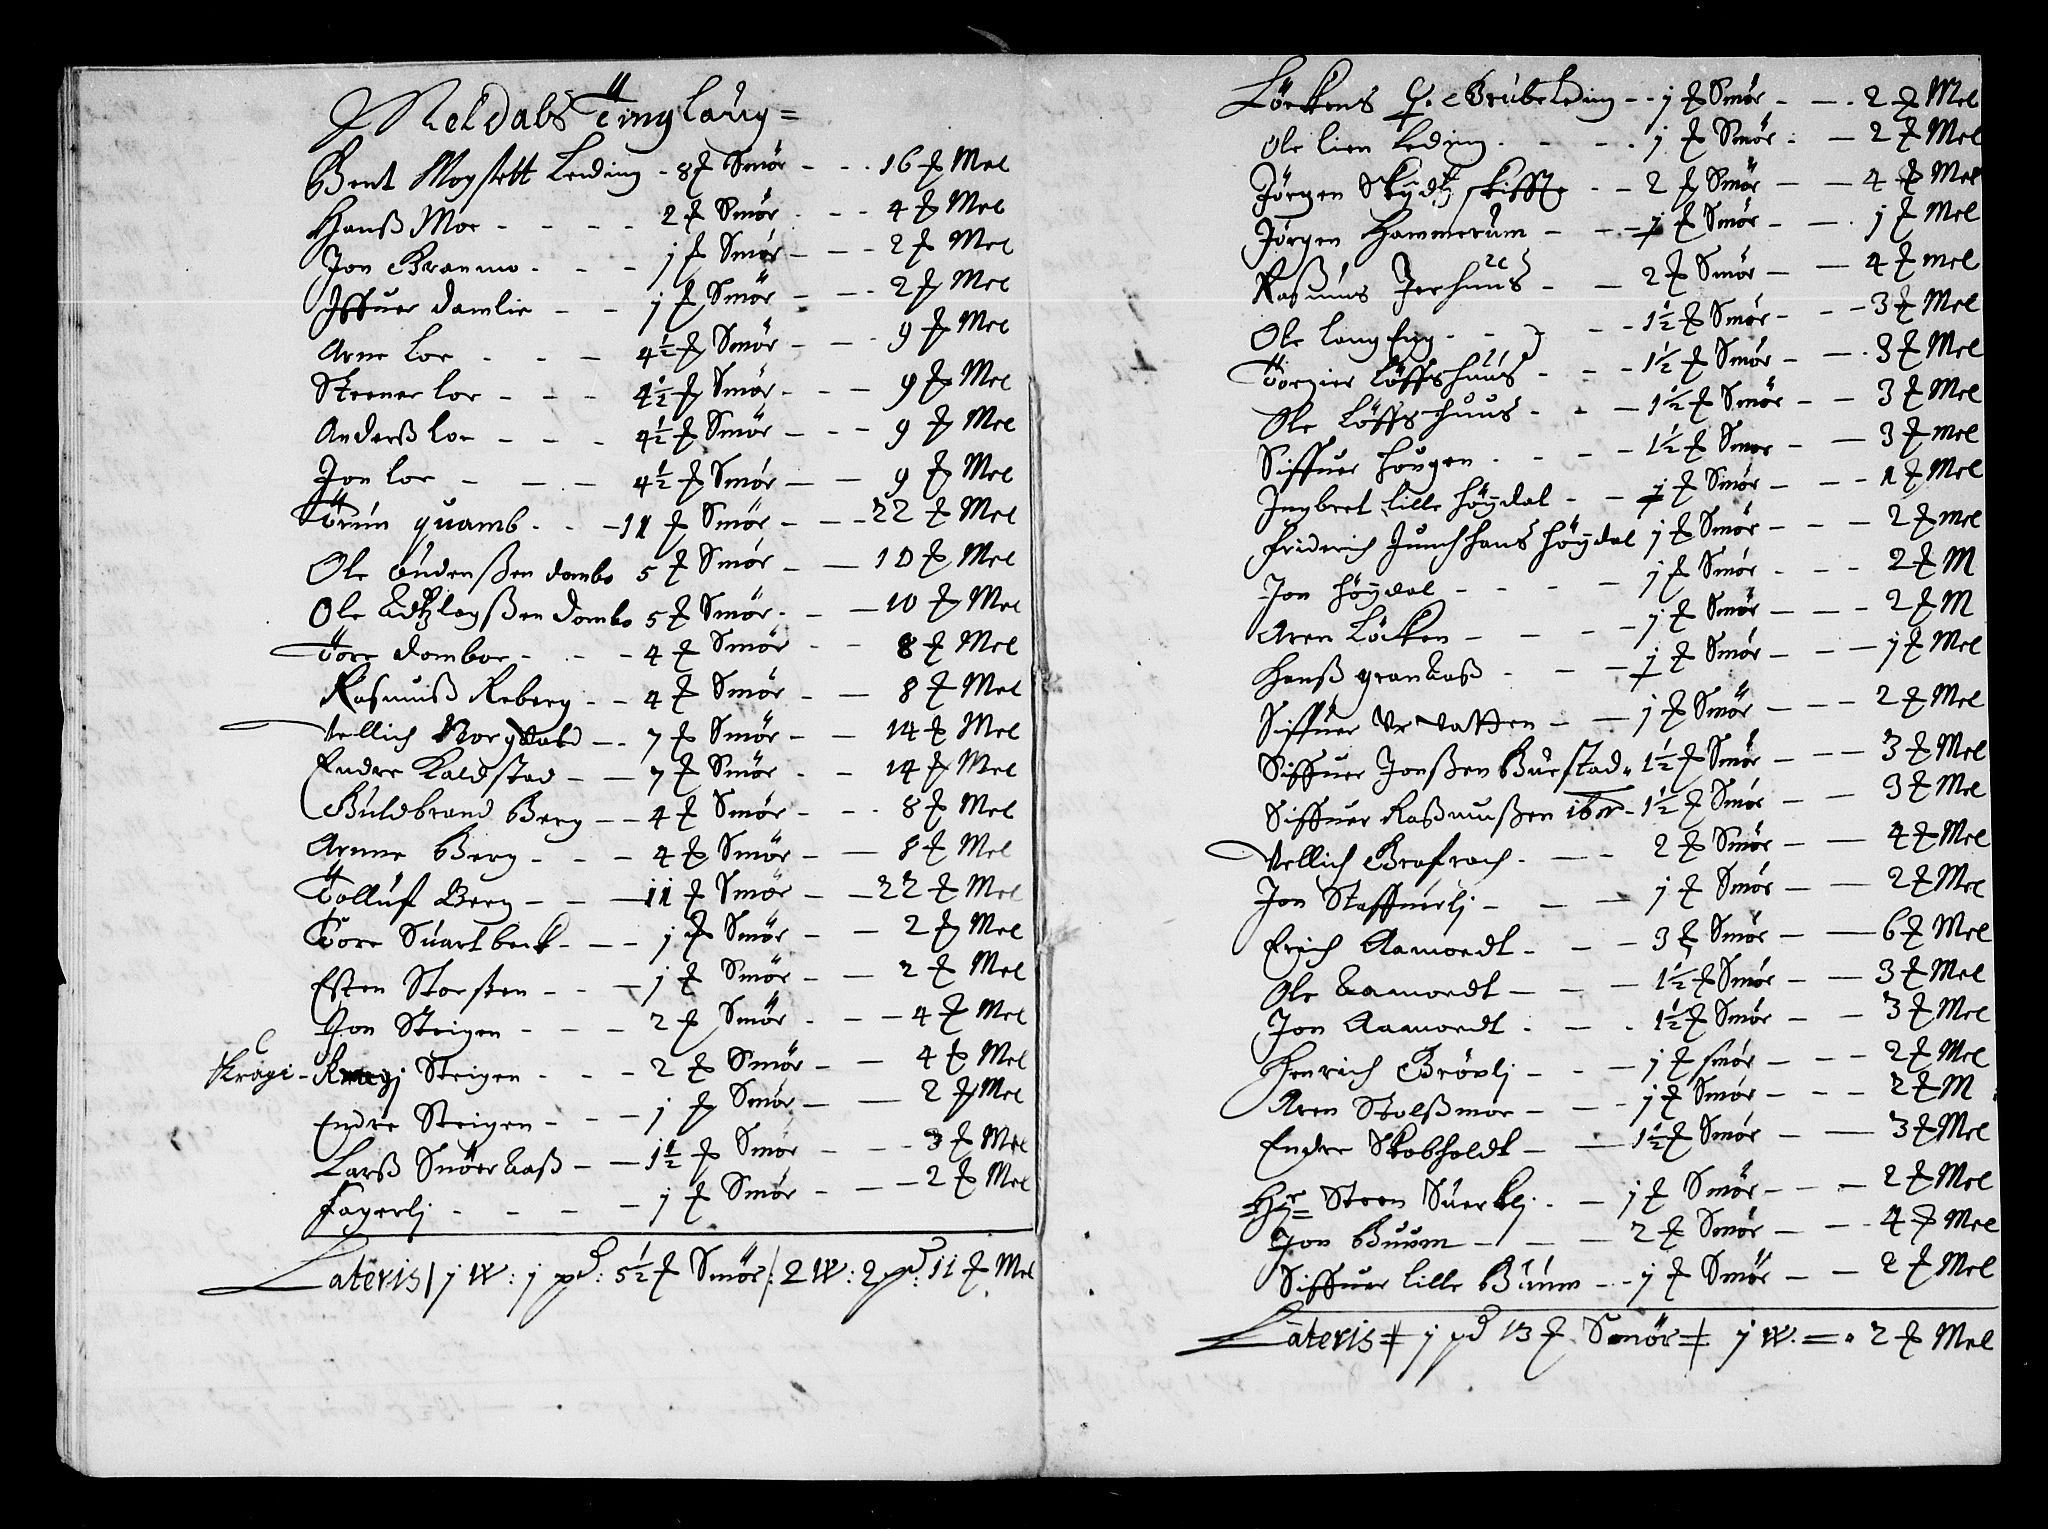 Meldals Tinglaug=
Bent Mogstett Leding - 8 ℔ Smör - - - 16 ℔ Mel
Hanß Moe - - - - 2 ℔ Smör - - - 4 ℔ Mel
Jon Granmo - - - j ℔ Smör - - - 2 ℔ Mel
Iffuer damlie - - j ℔ Smör - - - 2 ℔ Mel
Arne Loe - - - 4½ ℔ Smör - - - 9 ℔ Mel
Steener loe - - - 4½ ℔ Smör - - - 9 ℔ Mel
Anderß loe - - - 4½ ℔ Smör - - - 9 ℔ Mel
Jon loe - - - 4½ ℔ Smör - - 9 ℔ Mel
Torúm quamb - - - 11 ℔ Smör - - - 22 ℔ Mel
Ole oúdenßen dombo 5 ℔ Smör - - 10 ℔ Mel
Ole dombo 5 ℔ Smör - - 10 ℔ Mel
Tore domboe - - - 4 ℔ Smör - - 8 ℔ Mel
Rasmuß Reberg - - 4 ℔ Smör - - 8 ℔ Mel
Vellich - - 7 ℔ Smör - - 14 ℔ Mel
Endre Kaldstad - - 7 ℔ Smör - - 14 ℔ Mel
Gúldbrand Berg - - 4 ℔ Smör - - - 8 ℔ Mel
Arnne Berg - - - 4 ℔ Smör - - 8 ℔ Mel
Tollúf Berg - - - 11 ℔ Smör - - 22 ℔ Mel
Tore Súartbeck - - - j ℔ Smör - - 2 ℔ Mel
Esten Storsten - - - j ℔ Smör - - 2 ℔ Mel
Jon Steigen - - - - 2 ℔ Smör - - - 4 ℔ Mel
Kragi - Steigen - - - 2 ℔ Smör - - 4 ℔ Mel
Endre Steigen - - - j ℔ Smör - - 2 ℔ Mel
Larß Snöeraaß - - 1½ ℔ Smör - - - 3 ℔ Mel
Fagerlj - - - - j ℔ Smör - - - 2 ℔ Mel
Lateris / j W : j pd : 5½ ℔ Smör / 2 W : 2 pd : 11 ℔ Mel
Löckens Grúbe Leding - - j ℔ Smör - - - 2 ℔ Mel
Ole lien Leding - - - j ℔ Smör - - 2 ℔ Mel
Jörgen skiffte - - 2 ℔ Smör - - 4 ℔ Mel
Jörgen Hammerúm - - - j ℔ Smör - - - j ℔ Mel
Rasmús Jerhuus - - 2 ℔ Smör - - 4 ℔ mel
Ole langeng - - - 1½ ℔ Smör - - - 3 ℔ Mel
Torgier Löffshuus - - - 1½ ℔ Smör - - - 3 ℔ Mel
Ole Löffshuus - - - 1½ ℔ Smör - - 3 ℔ Mel
Siffuer Hougen - - - - 1½ ℔ Smör - - 3 ℔ mel
Ingbret lille höÿdal - - j ℔ Smör - - - 1 ℔ Mel
Friderich Junchhans höÿdal j ℔ Smör - - - 2 ℔ mel
Jon höÿdal - - - - j ℔ Smör - - - 2 ℔ M
Aren Löcken - - - - j ℔ Smör - - - 2 ℔ M
Hanß granaaß - - - j ℔ Smör - - - j ℔ Mel
Siffúer Urvatten - - j ℔ Smör - - - 2 ℔ Mel
Siffuer Jonßen Búrstad - 1½ ℔ Smör - - - 3 ℔ Mel
Siffuer Raßmußen ibm - 1½ ℔ Smör - - 3 ℔ Mel
Vellich - - - 2 ℔ Smör - - 4 ℔ Mel
Jon Staffúerlj - - - j ℔ Smör - - 2 ℔ Mel
Erich Aamoedt - - - 3 ℔ Smör - - 6 ℔ Mel
Ole Aamoedt - - - 1½ ℔ Smör - - 3 ℔ Mel
Jon Aamoedt - - - 1½ ℔ Smör - - 3 ℔ Mel
Henrich Grövlj - - - j ℔ smör - - - 2 ℔ Mel
Aren Stolßmoe - - - j ℔ Smör - - - 2 ℔ M :
Endre Skobholdt - - 1½ ℔ Smör - - 3 ℔ Mel
Hr Steen Súerklj - - j ℔ Smör - - - 2 ℔ Mel
Jon Buum - - - 2 ℔ Smör - - - 4 ℔ Mel
Siffuer lille Búúm - - j ℔ Smör - - 2 ℔ Mel
Lateris / j pd 13 ℔ Smör / j W. = 2 ℔ Mel